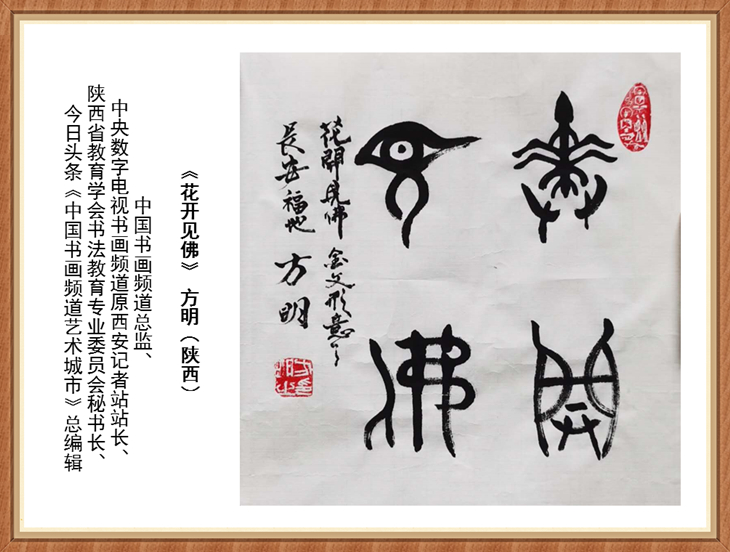 花開
見佛
花開見佛 金文形意
長安福地 方明
《花开见佛》 方明（陕西）
中国书画频道总监、
中央数字电视书画频道原西安记者站站长、
陕西省教育学会书法教育专业委员会秘书长、
今日头条《中国书画频道艺术城市》总编辑